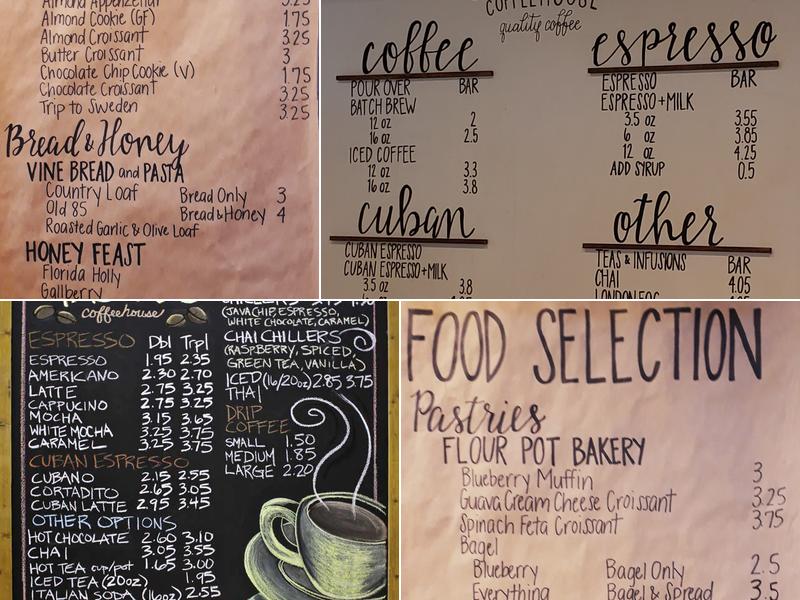 Almond Appenzellar 3.25
Almond Cookie (GF) 1.75
Almond Croissant 3.25
Butter Croissant 3
Chocolate Chip Cookie (V) 1.75
Chocolate Croissant 3.25
Trip to Sweden 3.25
Bread & Honey
VINE BREAD and PASTA
Country Loaf Bread Only 3
Old 85 Bread & Honey 4
Roasted Garlic & Olive Loaf
HONEY FEAST
Florida Holly
Gallberry
COFFEEHOUSE
quality coffee
coffee
POUR OVER BAR
BATCH BREW
12 oz 2
16 oz 2.5
ICED COFFEE
12 oz 3.3
16 oz 3.8
espresso
ESPRESSO BAR
ESPRESSO+MILK
3.5 oz 3.55
6 oz 3.85
12 oz 4.25
ADD SYRUP 0.5
cuban
CUBAN ESPRESSO
CUBAN ESPRESSO+MILK
3.5 oz 3.8
other
TEAS & INFUSIONS BAR
CHAI 4.05
LONDON FOG
coffeehouse
ESPRESSO Dbl Trpl
ESPRESSO 1.95 2.35
AMERICANO 2.30 2.70
LATTE 2.75 3.25
CAPPUCINO 2.75 3.25
MOCHA 3.15 3.65
WHITE MOCHA 3.25 3.75
CARAMEL 3.25 3.75
CUBAN ESPRESSO
CUBANO 2.15 2.55
CORTADITO 2.65 3.05
CUBAN LATTE 2.95 3.45
OTHER OPTIONS
HOT CHOCOLATE 2.60 3.10
CHAI 3.05 3.55
HOT TEA cup/pot 1.65 3.00
ICED TEA (20oz) 1.95
ITALIAN SODA (16oz) 2.55
CHILLERS
(JAVA CHIP, ESPRESSO,
WHITE CHOCOLATE, CARAMEL)
CHAI CHILLERS
(RASPBERRY, SPICED,
GREEN TEA, VANILLA)
ICED (16/20oz) 2.85 3.75
THAI
DRIP
COFFEE
SMALL 1.50
MEDIUM 1.85
LARGE 2.20
FOOD SELECTION
Pastries
FLOUR POT BAKERY
Blueberry Muffin 3
Guava Cream Cheese Croissant 3.25
Spinach Feta Croissant 3.75
Bagel
Blueberry Bagel Only 2.5
Everything Bagel & Spread 3.5